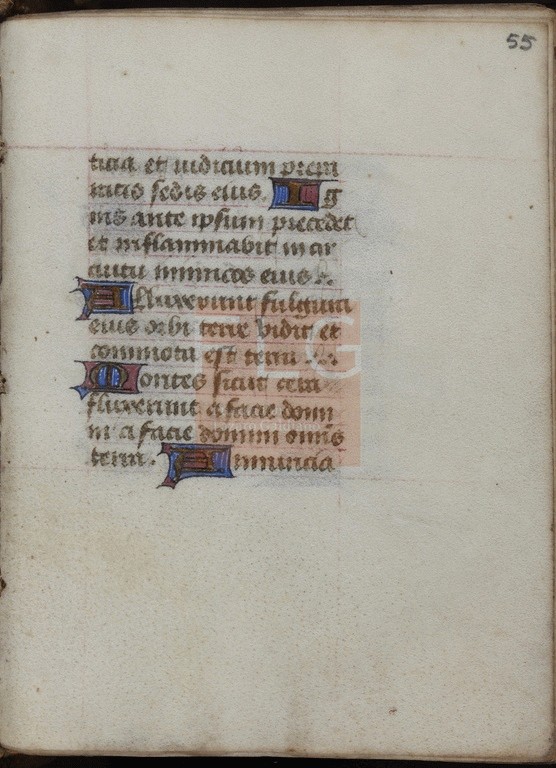 55
ticia et iudicium prepa
ratio sedis eius. Ig
nis ante ipsum precedet
et inflammabit in cir
cuitu inimicos eius
Alluxerunt fulgura
eius orbi terre vidit et
commota est terra
Montes sicut cera
fluxerunt a facie domi
ni a facie domini omnis
terra. Annuncia